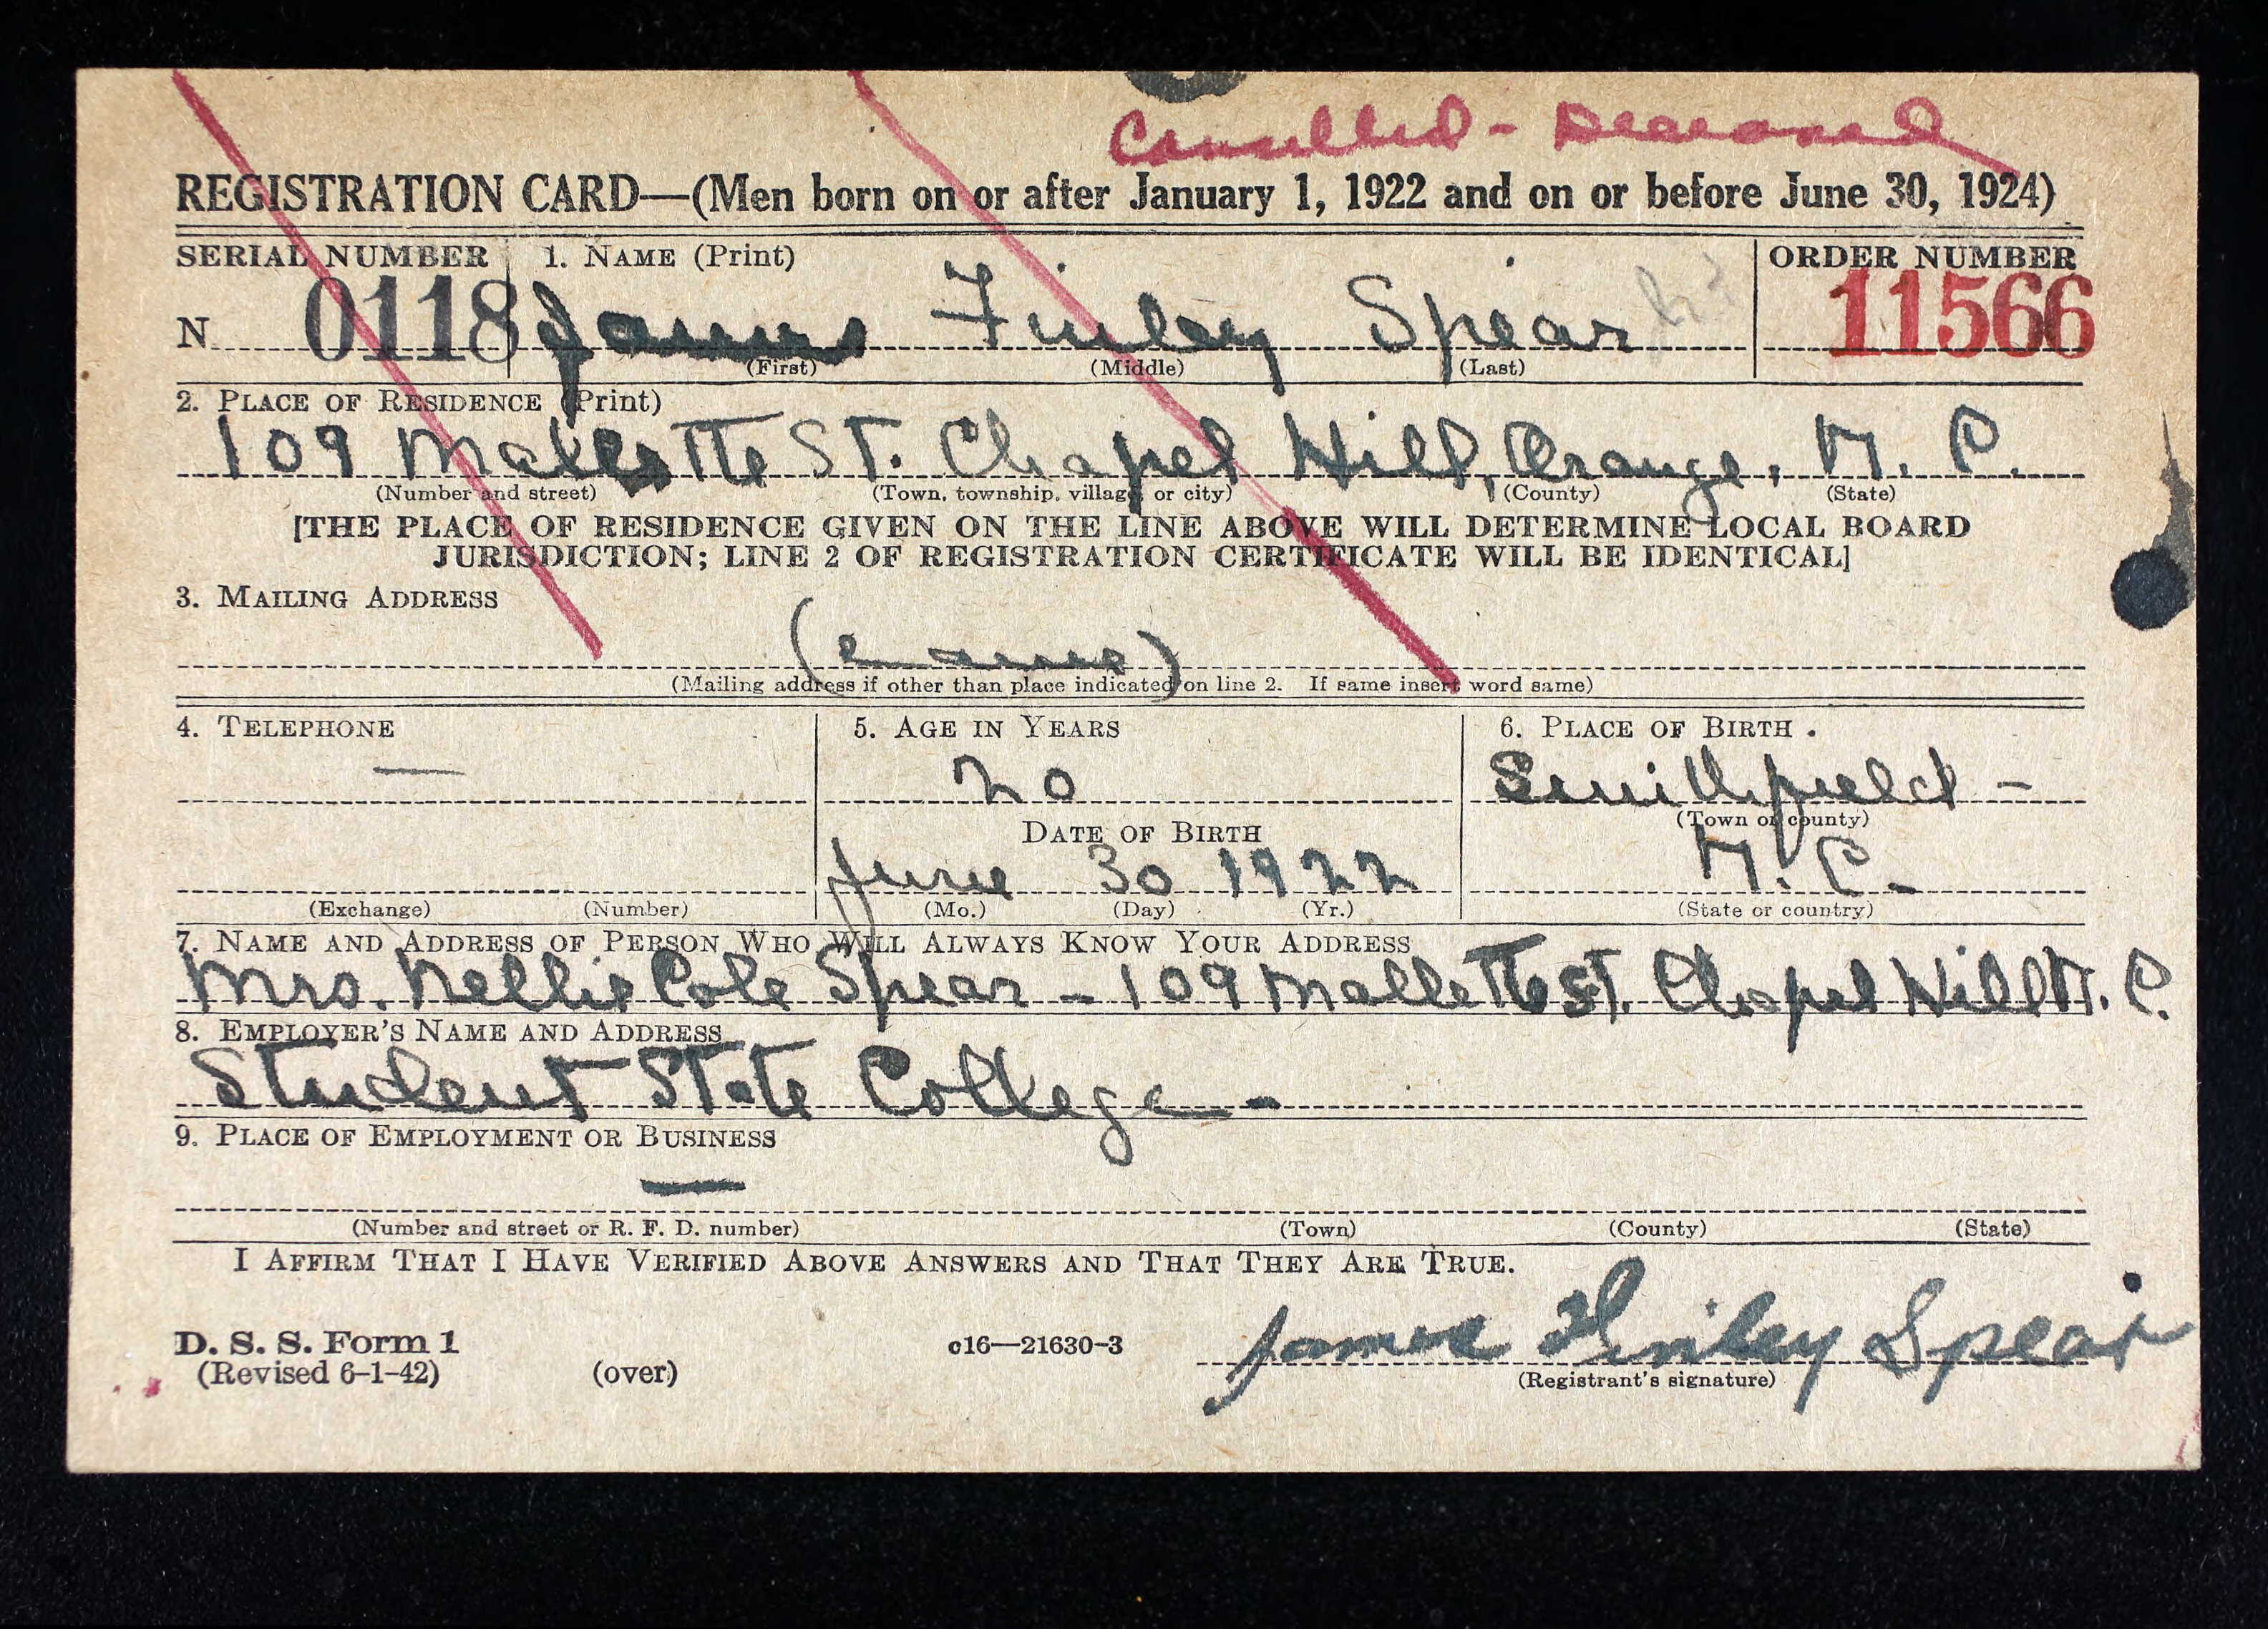 Cancelled - Deceased
REGISTRATION CARD—(Men born on or after January 1, 1922 and on or before June 30, 1924)
SERIAL NUMBER 1. NAME (Print) ORDER NUMBER
N 0118 James Finley Spear 11566
(First) (Middle) (Last)
2. PLACE OF RESIDENCE (Print)
109 Mallette ST. Chapel Hill, Orange, N. C.
(Number and street) (Town, township, village or city) (County) (State)
[THE PLACE OF RESIDENCE GIVEN ON THE LINE ABOVE WILL DETERMINE LOCAL BOARD
JURISDICTION; LINE 2 OF REGISTRATION CERTIFICATE WILL BE IDENTICAL]
3. MAILING ADDRESS
(same)
(Mailing address if other than place indicated on line 2. If same insert word same)
4. TELEPHONE 5. AGE IN YEARS 6. PLACE OF BIRTH
— 20 Smithfield -
(Town or county)
DATE OF BIRTH
June 30 1922 N. C.
(Exchange) (Number) (Mo.) (Day) (Yr.) (State or country)
7. NAME AND ADDRESS OF PERSON WHO WILL ALWAYS KNOW YOUR ADDRESS
Mrs. Nellie Cole Spear - 109 Mallette ST. Chapel Hill N. C.
8. EMPLOYER'S NAME AND ADDRESS
Student State College -
9. PLACE OF EMPLOYMENT OR BUSINESS
—
(Number and street or R. F. D. number) (Town) (County) (State)
I AFFIRM THAT I HAVE VERIFIED ABOVE ANSWERS AND THAT THEY ARE TRUE.
James Finley Spear
D. S. S. Form 1 c16—21630-3
(Revised 6-1-42) (over) (Registrant's signature)